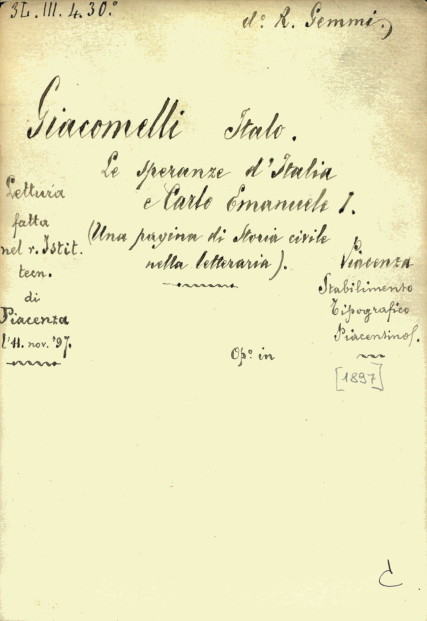 3L. III. 4. 30.°
d.° R. Gemmi.
Giacomelli Italo.
Le speranze d'Italia
e Carlo Emanuele I.
(Una pagina di Storia civile
nella letteraria).
Lettura
fatta
nel r. Istit.
tecn.
di
Piacenza
l'11. nov. '97.
Piacenza
Stabilimento
Tipografico
Piacentino.
[1897]
Op.° in